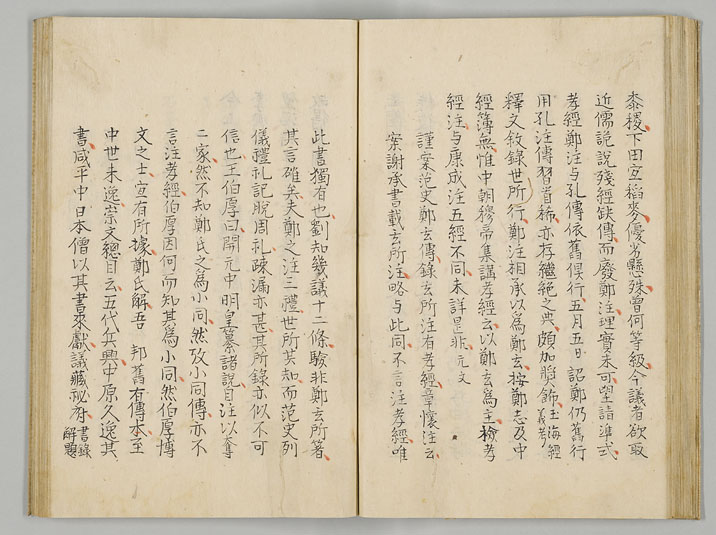 黍稷下田宜稻麥優劣懸殊曽何等級今議者欲取
近儒詭說殘經缺傳而廢鄭注理實未可望請準式
孝經鄭注与孔傳依舊俱行五月五日詔鄭仍舊行
用孔注傳習者稀亦存継絶之典頗加賑飾玉海經義考
釋文敘錄世所行鄭注相承以為鄭玄按鄭志及中
經簿無惟中朝穆帝集講孝經云以鄭玄為主檢孝
經注与康成注五經不同未詳是非元文
謹案范史鄭玄傳錄玄所注有孝經章懷注云
案謝承書載玄所注略与此同不言注孝經唯
此書獨有也劉知幾議十二條驗非鄭玄所箸
其言確矣夫鄭之注三禮世所共知而范史列
儀禮礼記脫周礼疎漏亦甚其所錄亦似不可
信也王伯厚曰開元中明皇纂諸說自注以奪
二家然不知鄭氏之為小同然攷小同傳亦不
言注孝經伯厚因何而知其為小同然伯厚博
文之士宜有所據鄭氏解吾邦舊有傳本至
中世未逸崇文總目云五代兵興中原久逸其
書咸平中日本僧以其書來獻議藏秘府書錄解題